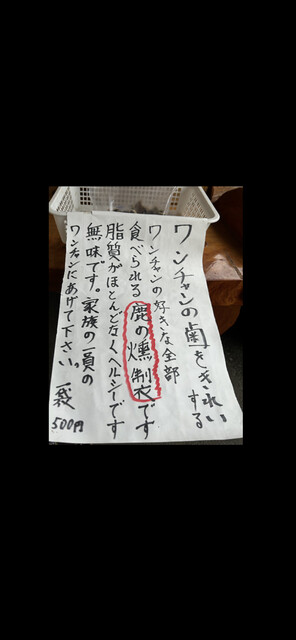 ワンチャンの歯をきれいにする
ワンチャンの好きな全部
食べられる鹿の燻製です
脂質がほとんどなくヘルシーです
無味です。家族の一員の
ワンチャンにあげて下さい。一袋
500円